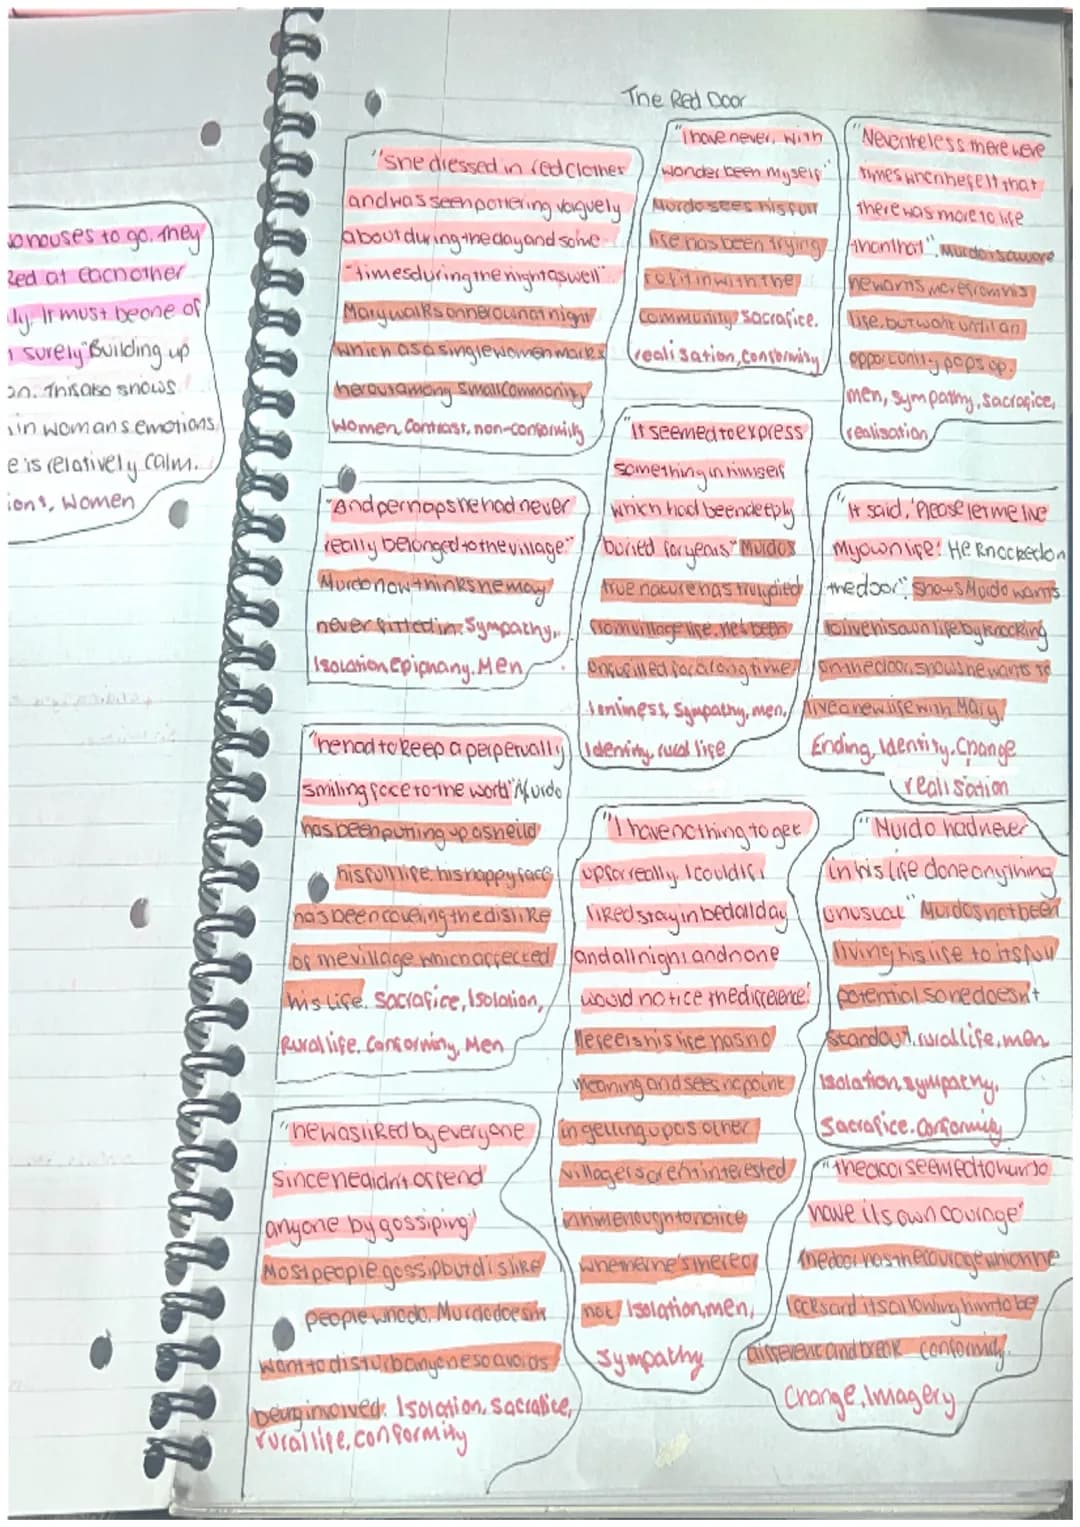 The Red Door
houses to go. They
at each other
It must be one of
surely" Building up
This also shows
in womans emotions
e is relatively calm.
Women
"She dressed in red clothes
and was seen pottering vaguely
about during the day and some-
"times during the night as well"
Mary walks on her own at night
which as a single women marks
her out among small commonity
women, Contrast, non-conformity
"I have never, with
wonder been myself"
Murdo sees his full
life has been trying
to fit in with the
community. sacrafice.
realisation, conformity
"Nevertheless there were
times when he felt that
there was more to life
than that". Murdo is aware
he wants more from his
life. but wait until an
opportunity pops up.
men, sympathy, sacrafice,
realisation
"And perhaps he had never
really belonged to the village."
Murdo now thinks he may
never fitted in. Sympathy,
Isolation, Epiphany, Men
"It seemed to express
something in himself
which had been deeply
buried for years" Murdos
true nature has truly died
from village life. he's been
unfulfilled for a long time
lonliness, Sympathy, men,
Identity, rural life
"It said, 'Please let me live
my own life! He knocked on
the door". Shows Murdo wants
to live his own life by knocking
on the door, shows he wants to
live a new life with Mary.
Ending, Identity, Change
realisation
"he had to keep a perpetually
smiling face to the world" Murdo
has been putting up a sheild
his full life. his happy face
has been covering the dislike
of the village which affected
his life. Sacrafice, Isolation,
Rural life, Conforming, Men
"I have nothing to get
up for really. I could if I
liked stay in bed all day
and all night and none
would notice the difference".
He feels his life has no
meaning and sees no point
in getting up as other
villagers arent interested
in him enough to notice
whether he's there or
not. Isolation, men,
sympathy
"Murdo had never
in his life done anything
unusual" Murdo's not been
living his life to its full
potential so he doesn't
standout. rural life, men
Isolation, sympathy,
Sacrafice, Conformity
"he was liked by everyone
since he didn't offend
anyone by gossiping"
Most people gossip but dislike
people who do. Murdo doesn't
want to disturb anyone so avoids
being involved. Isolation, Sacrafice,
rural life, conformity
"the door seemed to have to
have its own courage"
The door has the courage which he
lacks and its allowing him to be
different and break conformity.
Change, Imagery